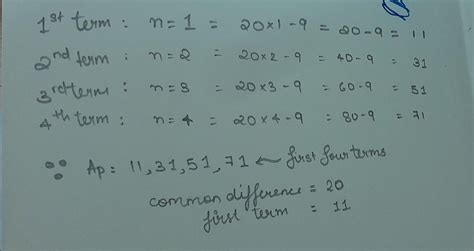 1st term : n = 1 = 20×1 - 9 = 20 - 9 = 11
2nd term : n = 2 = 20×2 - 9 = 40 - 9 = 31
3rd term : n = 3 = 20×3 - 9 = 60 - 9 = 51
4th term : n = 4 = 20×4 - 9 = 80 - 9 = 71
∵ Ap = 11, 31, 51, 71 ← first four terms
common difference = 20
first term = 11